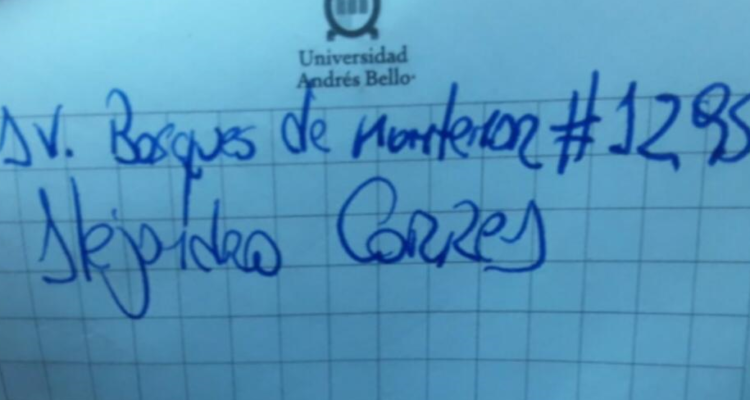 Universidad
Andrés Bello
Av. Bosques de Montemar #1295
Alejandro Correa